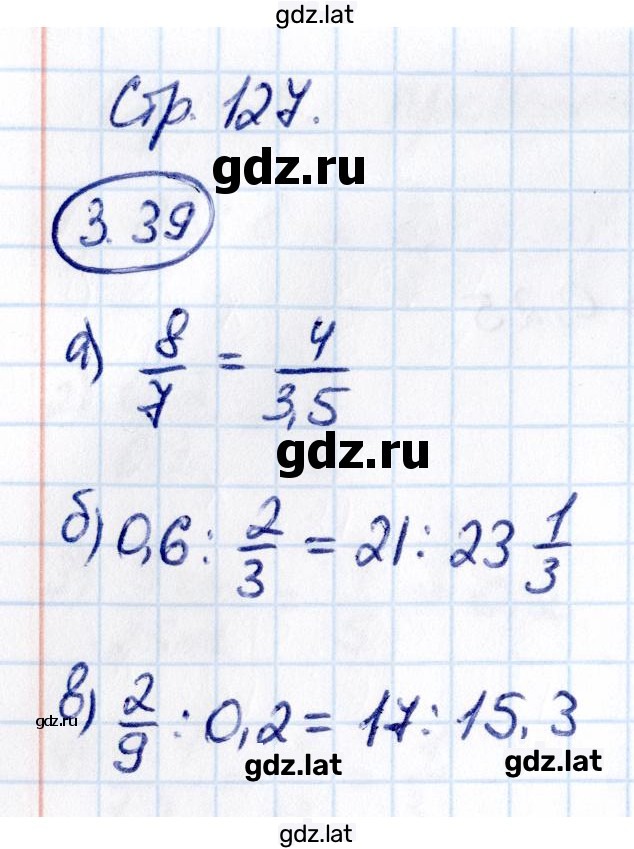 gdz.lat
Стр. 127.
gdz.ru
3.39
а) 8/7 = 4/3,5
gdz.ru
б) 0,6 : 2/3 = 21 : 23 1/3
в) 2/9 : 0,2 = 17 : 15,3
gdz.ru
gdz.lat
gdz.lat
gdz.lat